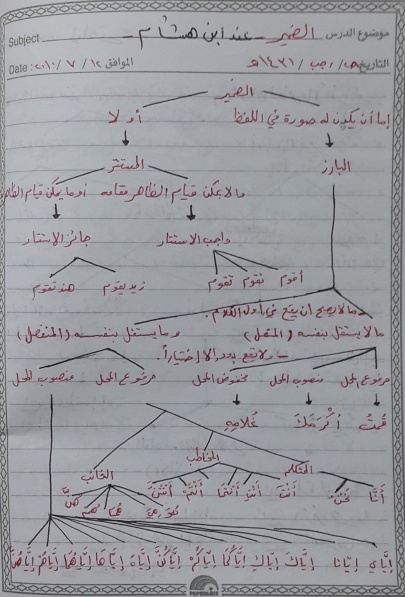 موضوع الدرس الضمير - عند ابن هشام - Subject
التاريخ / رجب / ١٤٣١هـ الموافق ٢٠١٠ / ٧ / ١٢ Date:
الضمير
إما أن يكون له صورة في اللفظ أو لا
البارز المستتر
ما لا يمكن قيام الظاهر مقامه أو ما يمكن قيام الظاهر
واجب الاستتار جائز الاستتار
أقوم نقوم تقوم زيد يقوم هند تقوم
- ما لا يصح أن يقع في أول الكلام.
ما لا يستقل بنفسه (المتصل) وما يستقل بنفسه (المنفصل)
- ولا يقع بعد إلا اختياراً.
مرفوع المحل منصوب المحل مخفوض المحل مرفوع المحل منصوب المحل
قمتُ أكرمَكَ غلامِهِ
المتكلم المخاطب الغائب
أَنَا نَحْنُ أَنْتَ أَنْتِ أَنْتُمَا أَنْتُمْ أَنْتُنَّ هُوَ هِيَ هُمَا هُمْ هُنَّ
إِيَّايَ إِيَّانَا إِيَّاكَ إِيَّاكِ إِيَّاكُمَا إِيَّاكُمْ إِيَّاكُنَّ إِيَّاهُ إِيَّاهَا إِيَّاهُمَا إِيَّاهُمْ إِيَّاهُنَّ